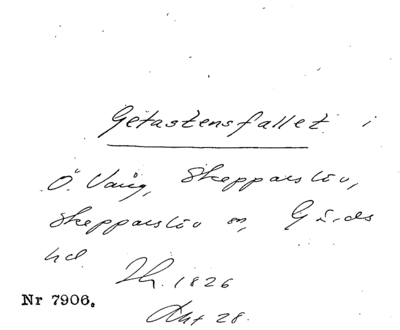 Getastensfallet i
Ö. Vång, Skepparslöv,
Skepparslöv sn, Gärds
hd
Th. 1826
Nr 7906.
Akt 28.